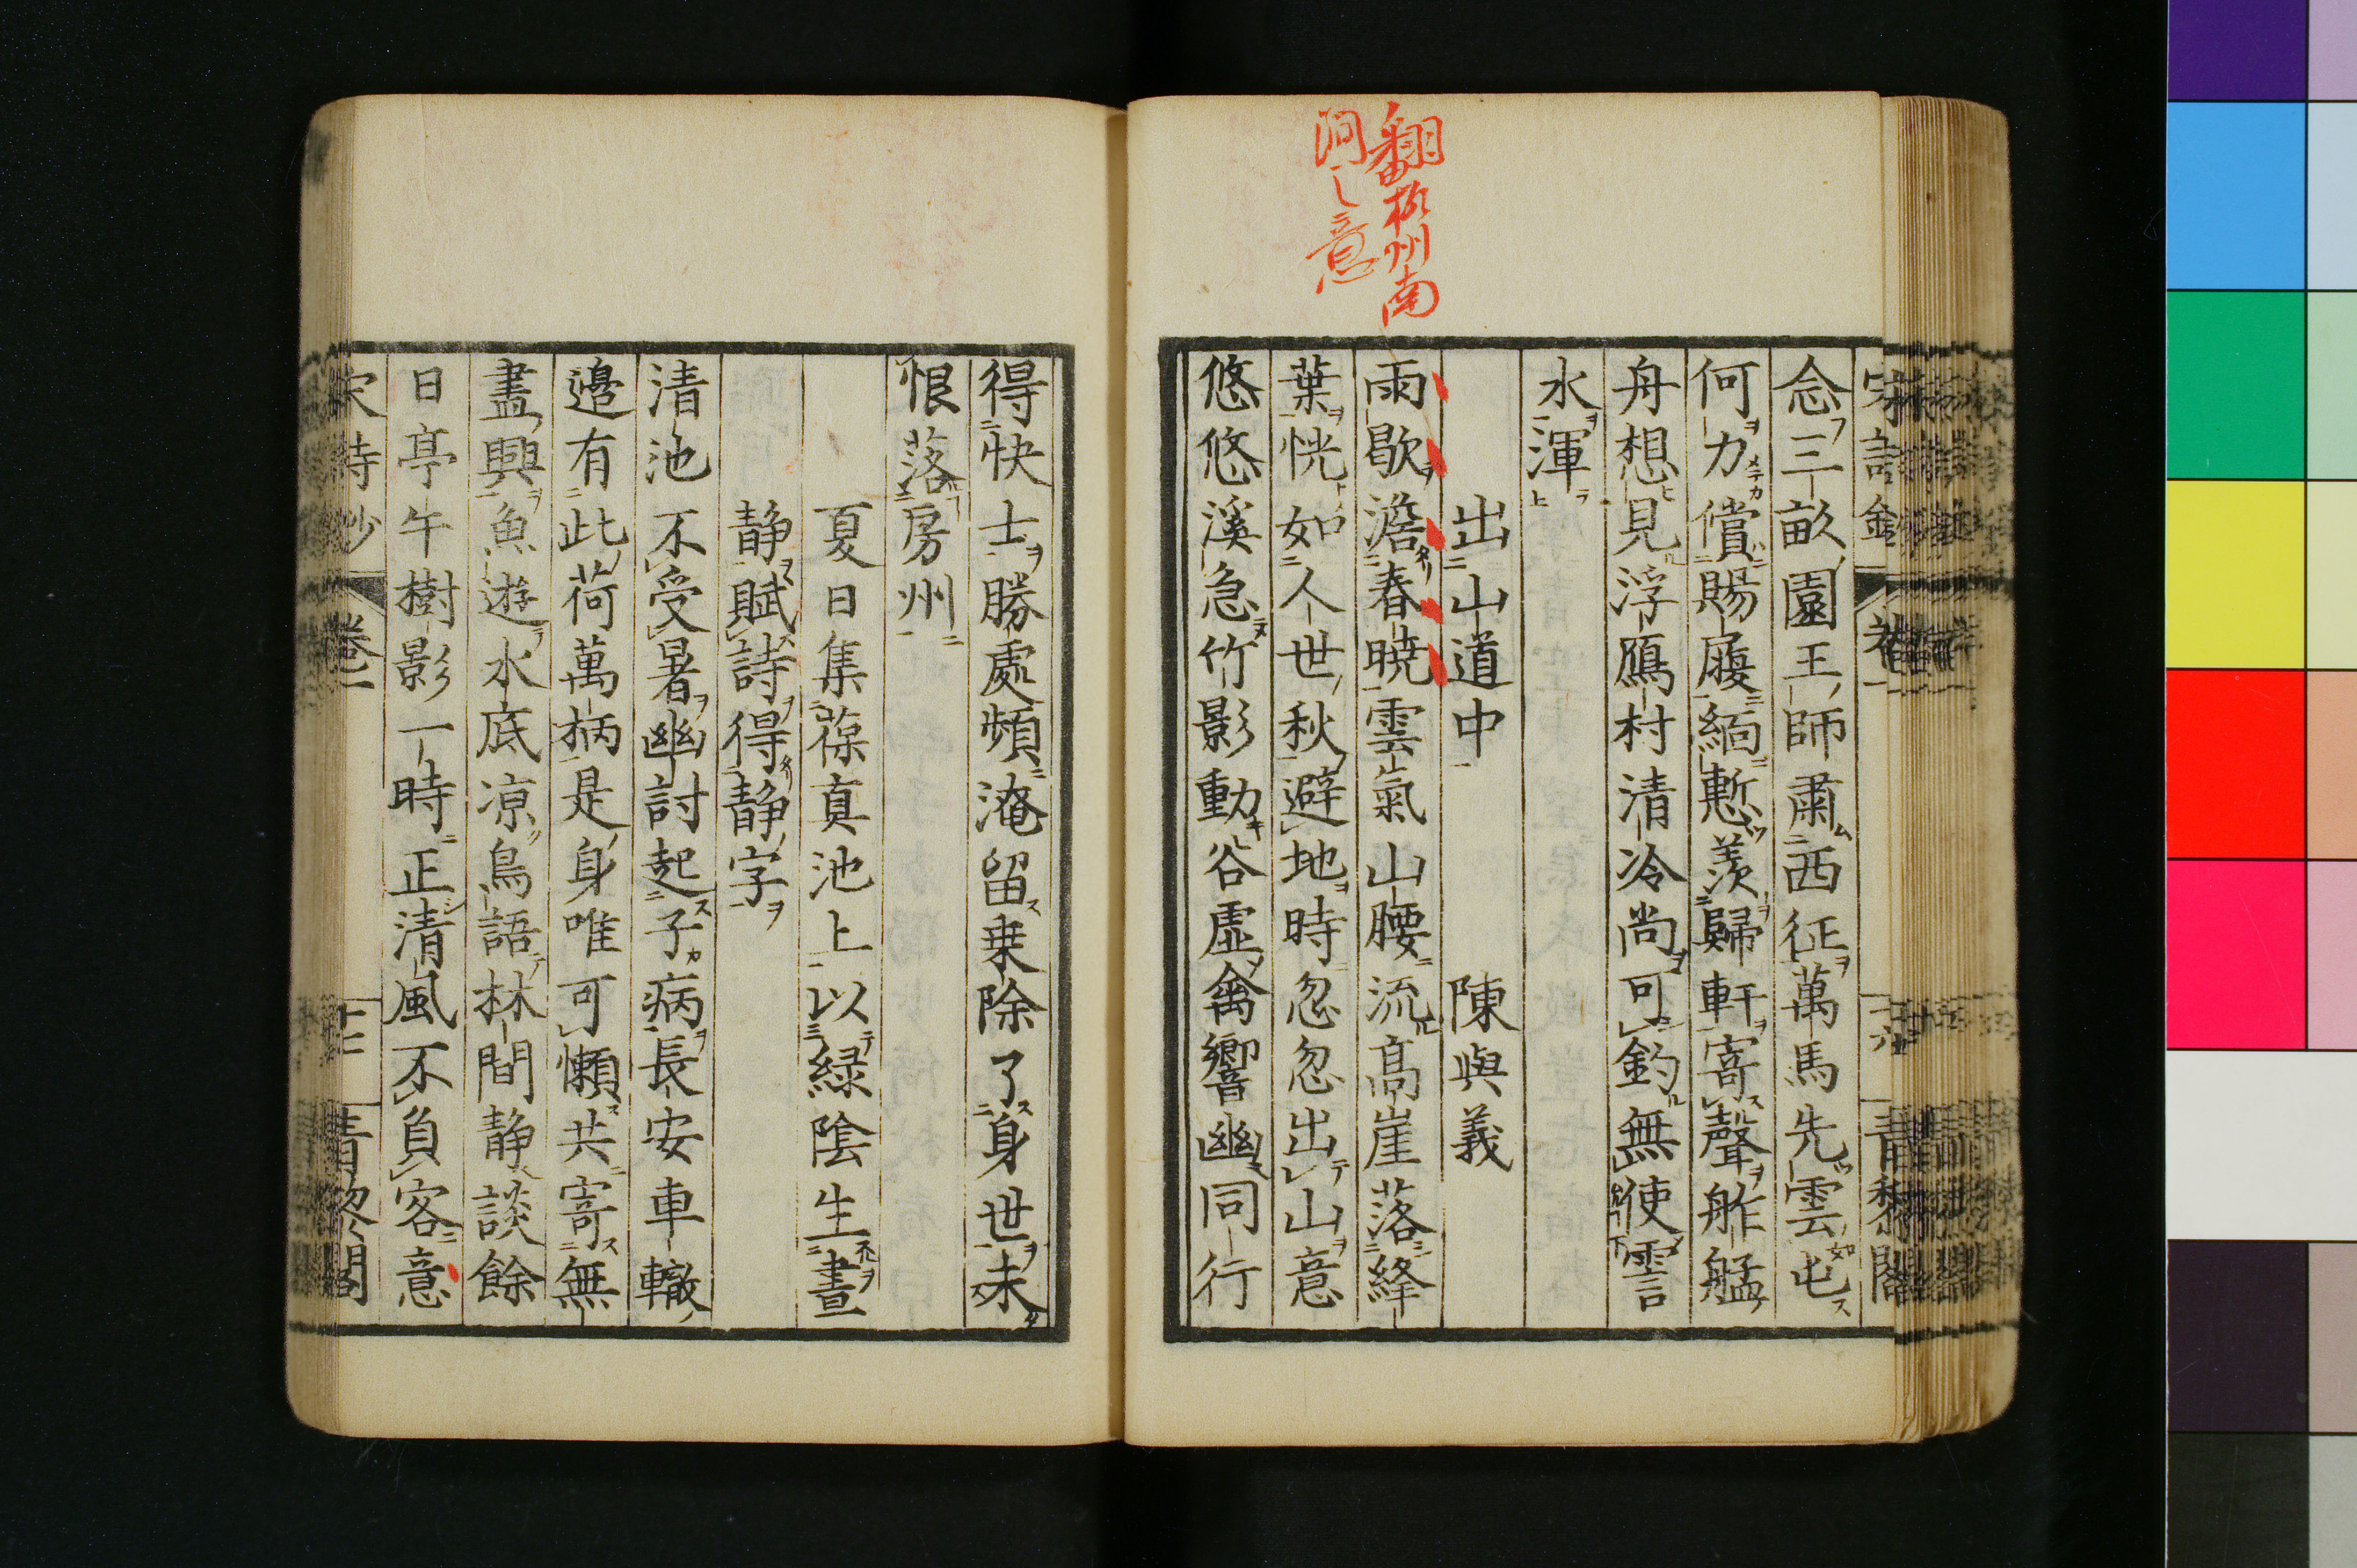 翻柳州南
澗之意
念三畝園王師肅西征萬馬先雲屯
何力償賜履緬慙羨歸軒寄聲舴艋
舟想見浮鴈村清冷尚可釣無使雪
水渾
出山道中　陳與義
雨歇澹春曉雲氣山腰流高崖落絳
葉恍如人世秋避地時忽忽出山意
悠悠溪急竹影動谷虛禽響幽同行
得快士勝處頻淹留乗除了身世未
恨落房州
夏日集葆真池上以緑陰生晝
静賦詩得静字
清池不受暑幽討起子病長安車轍
邉有此荷萬柄是身唯可懶共寄無
盡興魚遊水底凉鳥語林間静談餘
日亭午樹影一時正清風不負客意
宋詩鈔　卷一　十二　青黎閣